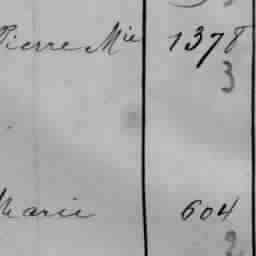 Pierre Mie 1378
3
Marie 604
2